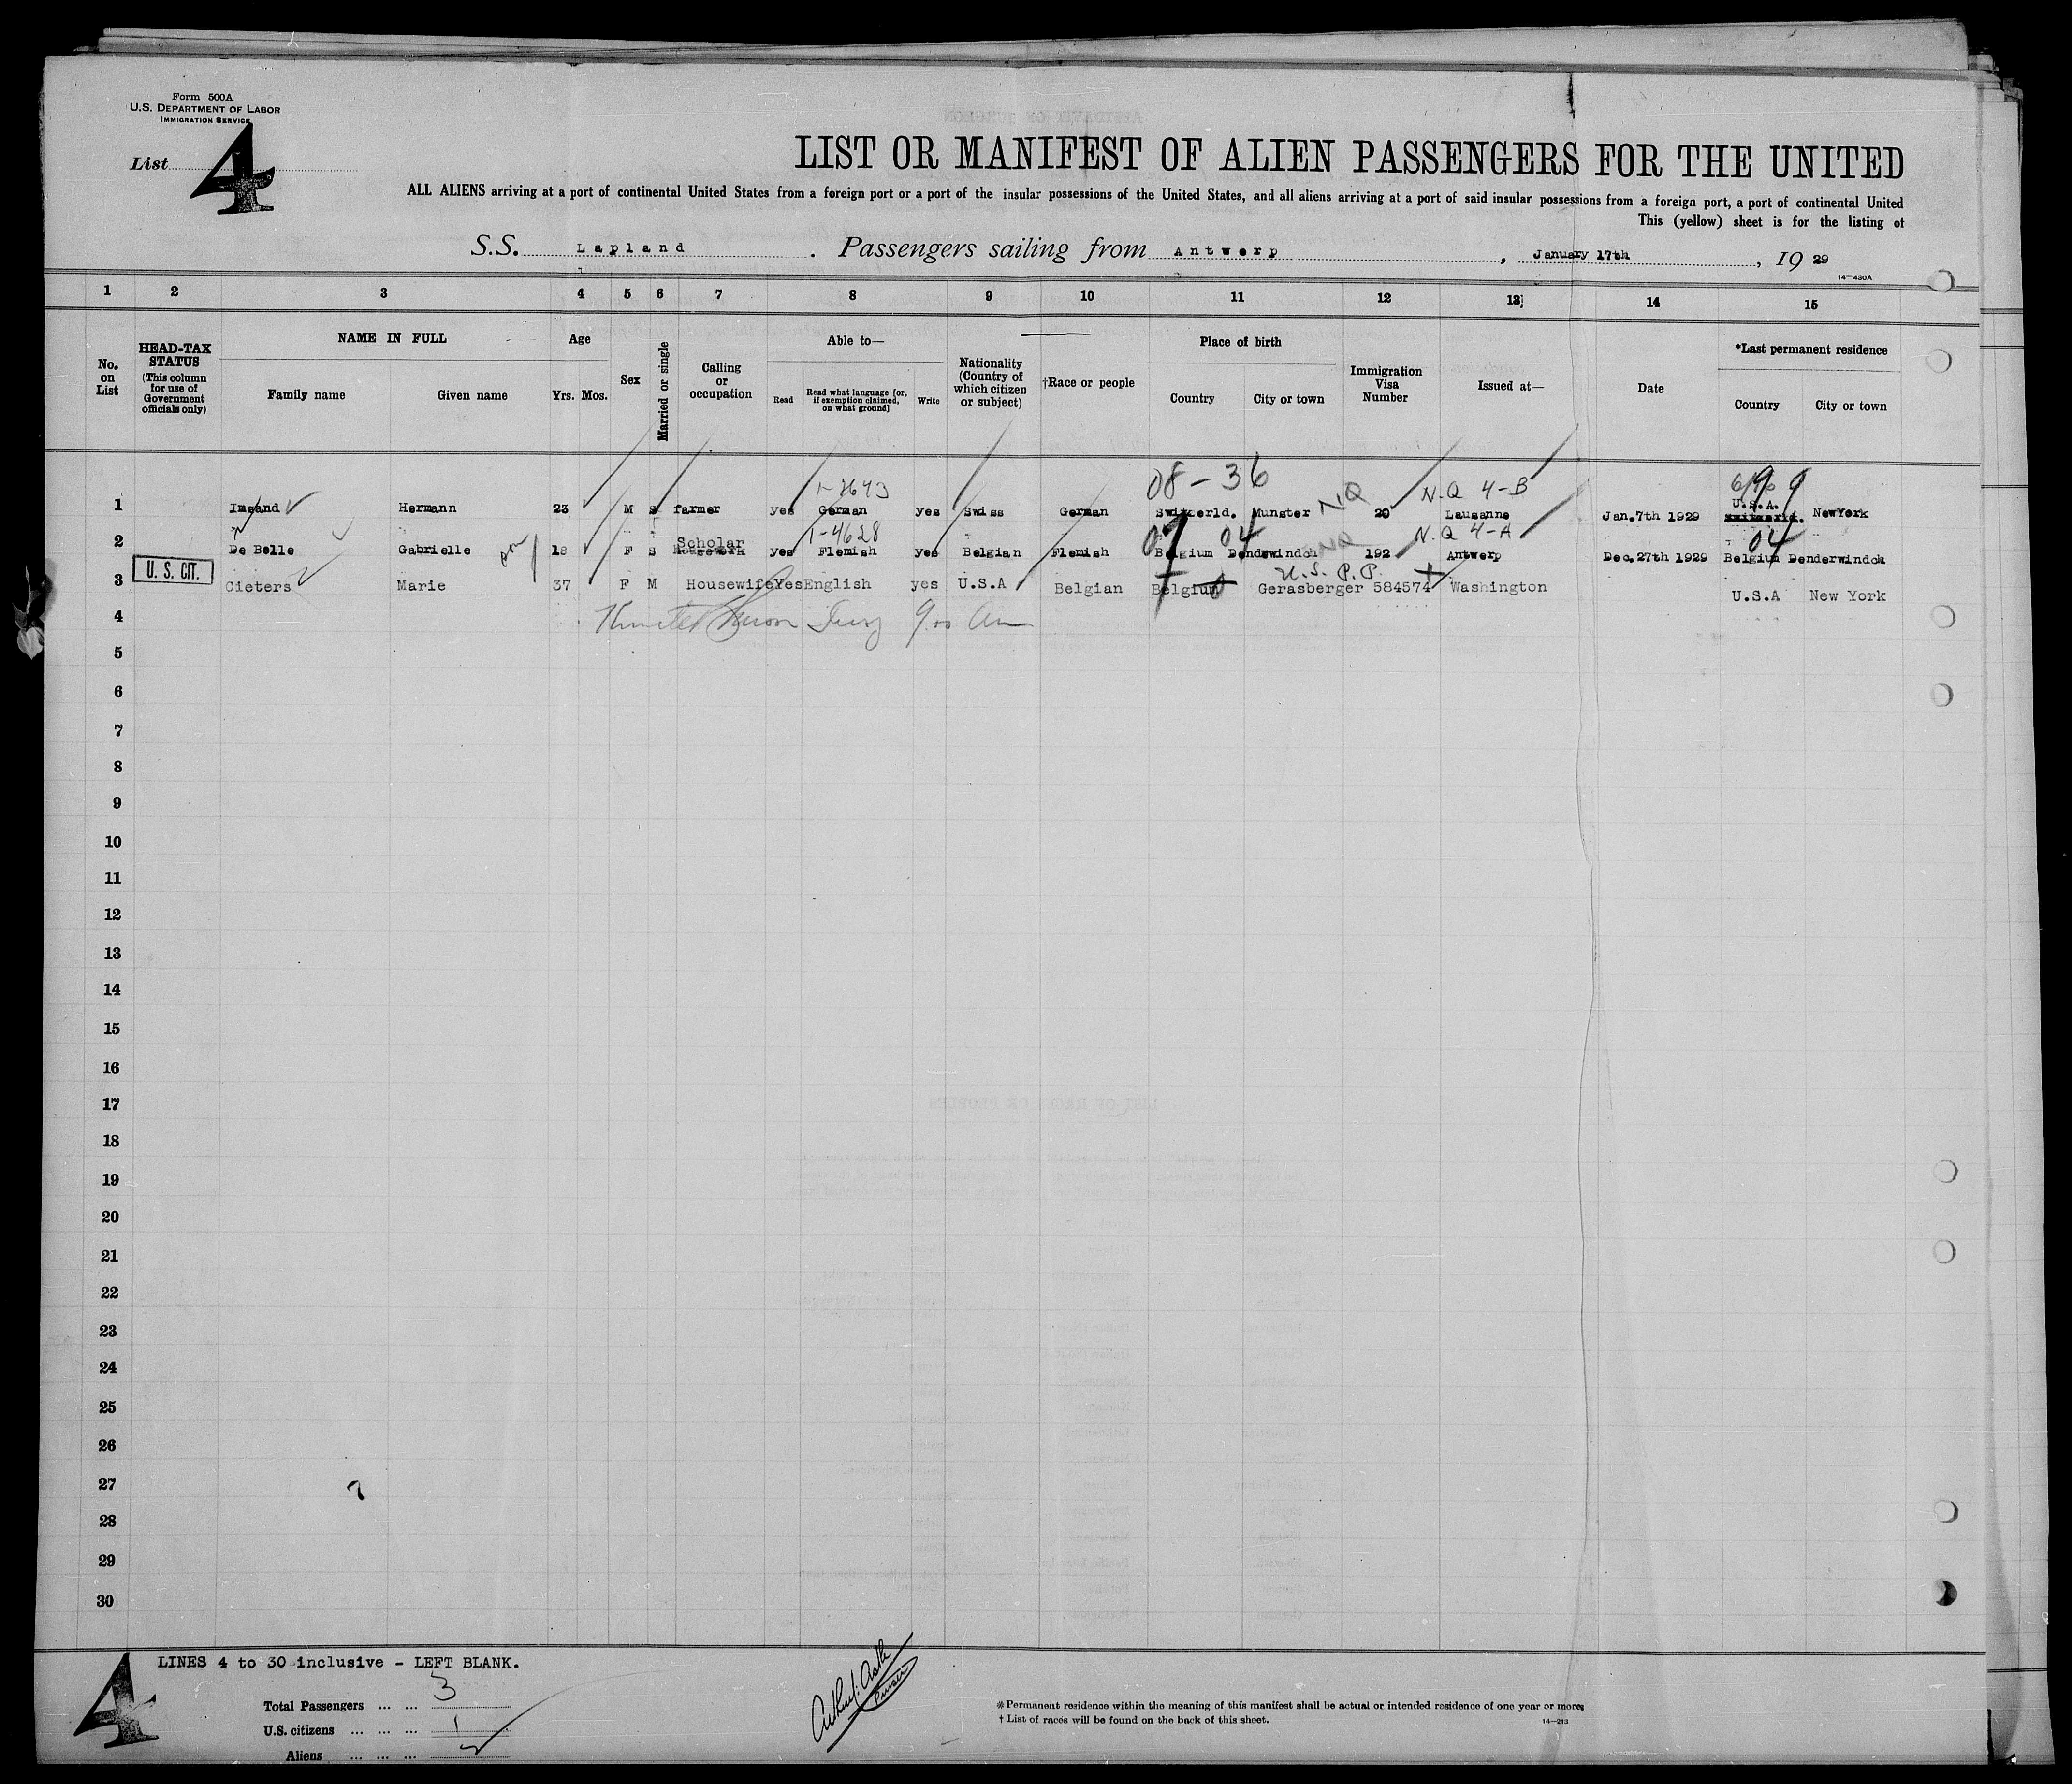 Form 500A
U.S. DEPARTMENT OF LABOR
IMMIGRATION SERVICE
List 4
LIST OR MANIFEST OF ALIEN PASSENGERS FOR THE UNITED
ALL ALIENS arriving at a port of continental United States from a foreign port or a port of the insular possessions of the United States, and all aliens arriving at a port of said insular possessions from a foreign port, a port of continental United
This (yellow) sheet is for the listing of
S.S. Lapland . Passengers sailing from Antwerp , January 17th , 19 29
14—430A
1 2 3 4 5 6 7 8 9 10 11 12 13 14 15
No. on List
HEAD-TAX STATUS (This column for use of Government officials only)
NAME IN FULL
Family name Given name
Age
Yrs. Mos.
Sex
Married or single
Calling or occupation
Able to—
Read
Read what language [or, if exemption claimed, on what ground]
Write
Nationality (Country of which citizen or subject)
†Race or people
Place of birth
Country City or town
Immigration Visa Number
Issued at—
Date
*Last permanent residence
Country City or town
08-36
1-7673 NQ N.Q 4-B
U.S.A.
1 Imsand Hermann 23 M S farmer yes German yes Swiss German Switzerld. Munster 29 Lausanne Jan.7th 1929 Switzerld. NewYork
Scholar 1-4628 07 04 NQ N.Q 4-A 04
2 De Belle Gabrielle 18 F S Housework yes Flemish yes Belgian Flemish Belgium Denderwindch 192 Antwerp Dec.27th 1929 Belgium Denderwindck
U. S. CIT. U.S. P.P.
3 Cieters Marie 37 F M Housewife Yes English yes U.S.A Belgian Belgium Gerasberger 584574 Washington U.S.A New York
4
5
6
7
8
9
10
11
12
13
14
15
16
17
18
19
20
21
22
23
24
25
26
27
28
29
30
4
LINES 4 to 30 inclusive - LEFT BLANK.
Total Passengers ... ... 3
U.S. citizens ... ... ... 1
Aliens ... ... ... 2
Purser
* Permanent residence within the meaning of this manifest shall be actual or intended residence of one year or more.
† List of races will be found on the back of this sheet.
14—213